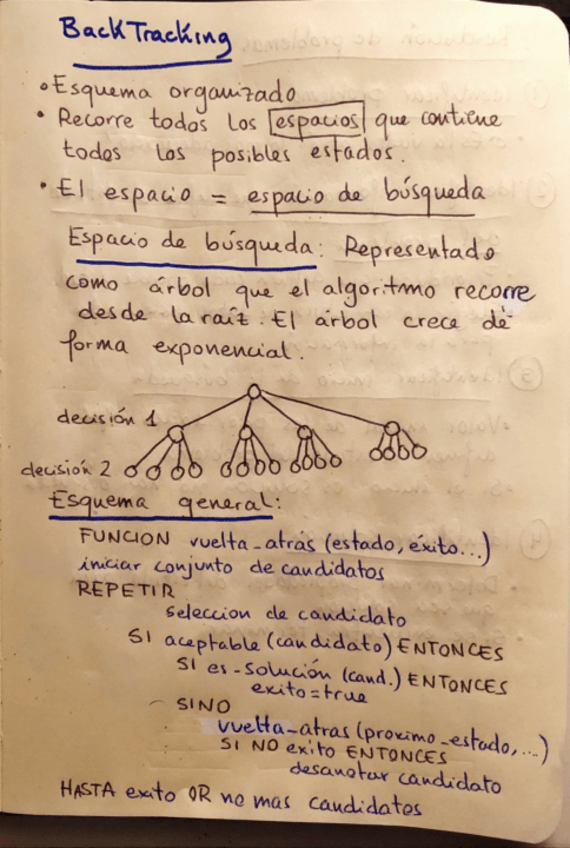 BackTracking
• Esquema organizado
• Recorre todos los espacios que contiene
todos los posibles estados.
• El espacio = espacio de búsqueda
Espacio de búsqueda: Representado
como árbol que el algoritmo recorre
desde la raíz. El árbol crece de
forma exponencial.
decisión 1
decisión 2
Esquema general:
FUNCION vuelta_atrás (estado, éxito...)
iniciar conjunto de candidatos
REPETIR
seleccion de candidato
SI aceptable (candidato) ENTONCES
SI es-solución (cand.) ENTONCES
exito=true
SINO
vuelta-atras (proximo_estado,...)
SI NO exito ENTONCES
desanotar candidato
HASTA exito OR no mas candidatos